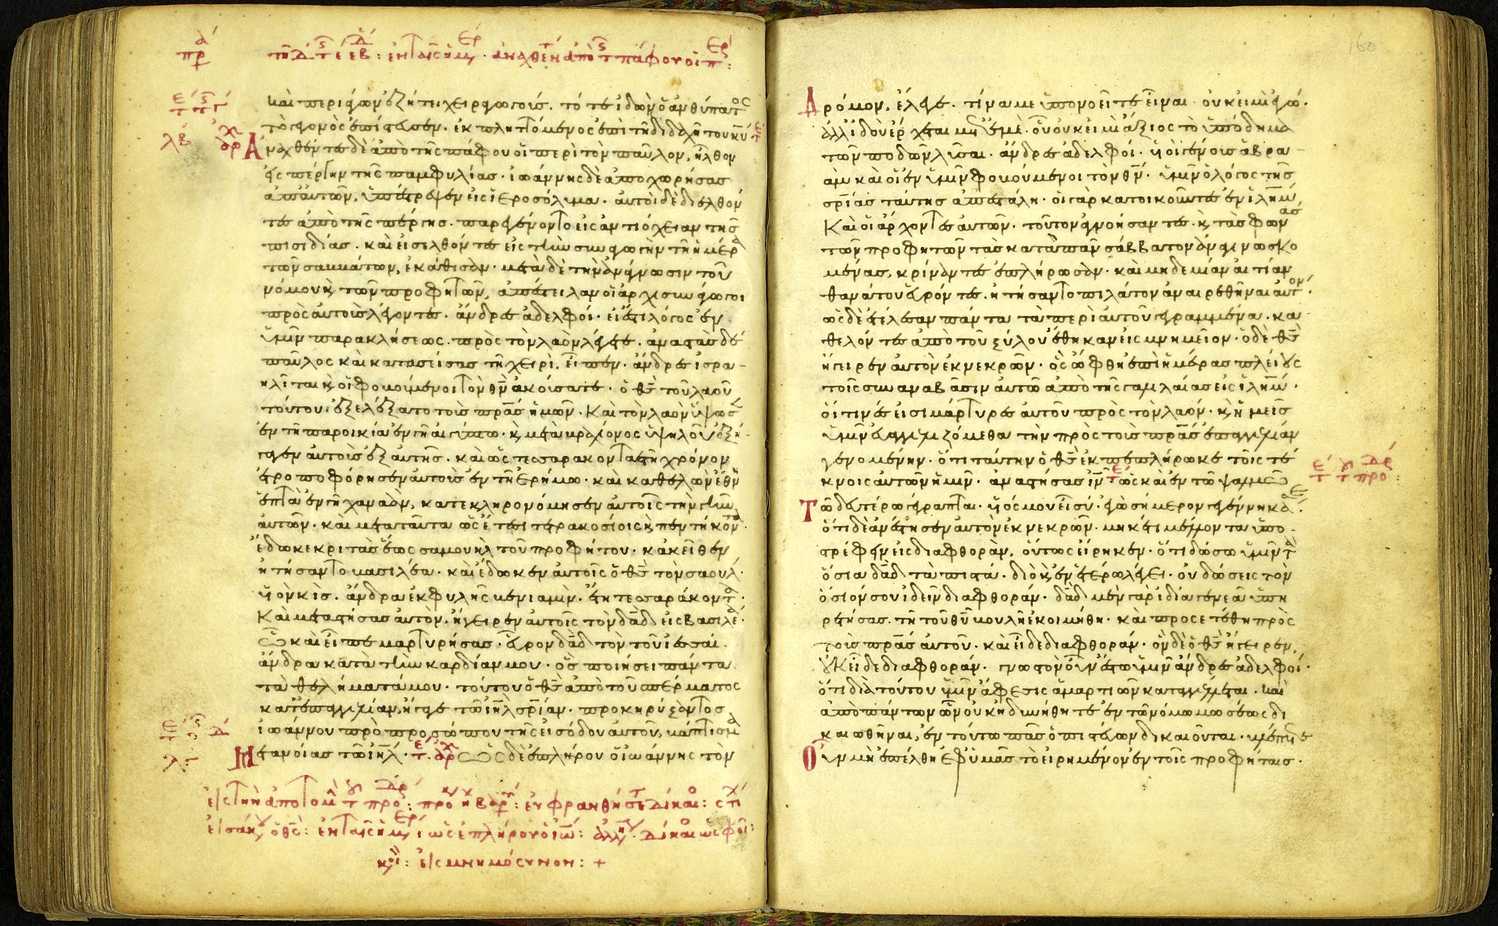 πρ
καὶ περιάγων ἐζήτει χειραγωγούς. τότε ἰδὼν ὁ ἀνθύπατος
τὸ γεγονὸς ἐπίστευσεν. ἐκπλησσόμενος ἐπὶ τῆ διδαχῆ τοῦ κυ
Ἀναχθέντες δὲ ἀπὸ τῆς πάφου οἱ περὶ τὸν παῦλον, ἦλθον
εἰς πέργην τῆς παμφυλίας. ἰωάννης δὲ ἀποχωρήσας
ἀπ' αὐτῶν, ὑπέστρεψεν εἰς ἱεροσόλυμα. αὐτοὶ δὲ διελθόν
τες ἀπὸ τῆς πέργης. παρεγένοντο εἰς ἀντιόχειαν τῆς
πισιδίας. καὶ εἰσελθόντες εἰς τὴν συναγωγὴν τῆ ἡμέρα
τῶν σαββάτων, ἐκάθισαν. μετὰ δὲ τὴν ἀνάγνωσιν τοῦ
νόμου καὶ τῶν προφητῶν, ἀπέστειλαν οἱ ἀρχισυνάγωγοι
πρὸς αὐτοὺς λέγοντες. ἄνδρες ἀδελφοί. εἰ ἔστι λόγος ἐν
ὑμῖν παρακλήσεως. πρὸς τὸν λαὸν λέγετε. ἀναστὰς δὲ
παῦλος καὶ κατασείσας τῆ χειρὶ, εἶπεν. ἄνδρες ἰσρα-
ηλῖται καὶ οἱ φοβούμενοι τὸν θν ἀκούσατε. ὁ θς τοῦ λαοῦ
τούτου, ἐξελέξατο τοὺς πρας ἡμῶν. Καὶ τὸν λαὸν ὕψωσεν
ἐν τῆ παροικία ἐν γῆ αἰγύπτω. καὶ μετὰ βραχίονος ὑψηλοῦ ἐξή-
γαγεν αὐτοὺς ἐξ αὐτῆς. καὶ ὡς τεσσαρακονταετῆ χρόνον
ἐτροποφόρησεν αὐτοὺς ἐν τῆ ἐρήμω. καὶ καθελὼν ἔθνη
ἑπτὰ ἐν γῆ χαναὰν, κατεκληρονόμησεν αὐτοῖς τὴν γῆν
αὐτῶν. καὶ μετὰ ταῦτα ὡς ἔτεσι τετρακοσίοις καὶ πεντήκοντα
ἔδωκε κριτὰς ἕως σαμουὴλ τοῦ προφήτου. κἀκεῖθεν
ἠτήσαντο βασιλέα. καὶ ἔδωκεν αὐτοῖς ὁ θς τὸν σαοὺλ.
υἱὸν κὶς. ἄνδρα ἐκ φυλῆς βενιαμιν. ἔτη τεσσαράκοντα.
Καὶ μεταστήσας αὐτὸν, ἤγειρεν αὐτοῖς τὸν δαδ εἰς βασιλέα.
ὧ καὶ εἶπε μαρτυρήσας. εὗρον δαδ τὸν τοῦ ἰεσσαί.
ἄνδρα κατὰ τὴν καρδίαν μου. ὃς ποιήσει πάντα
τὰ θελήματά μου. τούτου ὁ θς ἀπὸ τοῦ σπέρματος
κατ' ἐπαγγελίαν, ἤγαγε τῶ ιηλ σριαν. προκηρύξαντος
ἰωάννου πρὸ προσώπου τῆς εἰσόδου αὐτοῦ, βάπτισμα
Μετανοίας τῶ ιηλ. ὡς δὲ ἐπλήρου ὁ ἰωάννης τὸν
εἰς μνημόσυνον: +
160
Δρόμον, ἔλεγε. τίνα με ὑπονοεῖτε εἶναι. οὐκ εἰμὶ ἐγώ.
ἀλλ' ἰδοὺ ἔρχεται μετ' ἐμὲ. οὗ οὐκ εἰμὶ ἄξιος τὸ ὑπόδημα
τῶν ποδῶν λῦσαι. ἄνδρες ἀδελφοὶ. υἱοὶ γένους ἀβρα-
ὰμ καὶ οἱ ἐν ὑμῖν φοβούμενοι τὸν θν. ὑμῖν ὁ λόγος τῆς
σριας ταύτης ἀπεστάλη. οἱ γὰρ κατοικοῦντες ἐν ιλημ
Καὶ οἱ ἄρχοντες αὐτῶν. τοῦτον ἀγνοήσαντες. καὶ τὰς φωνὰς
τῶν προφητῶν τὰς κατὰ πᾶν σάββατον ἀναγινωσκο
μένας, κρίναντες ἐπλήρωσαν. καὶ μηδεμίαν αἰτίαν
θανάτου εὑρόντες. ἠτήσαντο πιλάτον ἀναιρεθῆναι αὐτόν.
ὡς δὲ ἐτέλεσαν πάντα τὰ περὶ αὐτοῦ γεγραμμένα. κα-
θελόντες ἀπὸ τοῦ ξύλου ἔθηκαν εἰς μνημεῖον. ὁ δὲ θς
ἤγειρεν αὐτὸν ἐκ νεκρῶν. ὃς ὤφθη ἐπὶ ἡμέρας πλείους
τοῖς συναναβᾶσιν αὐτῶ ἀπὸ τῆς γαλιλαίας εἰς ιλημ.
οἵτινές εἰσι μάρτυρες αὐτοῦ πρὸς τὸν λαόν. καὶ ἡμεῖς
ὑμῖν εὐαγγελιζόμεθα τὴν πρὸς τοὺς πρας ἐπαγγελίαν
γενομένην. ὅτι ταύτην ὁ θς ἐκπεπλήρωκε τοῖς τέ
κνοις αὐτῶν ἡμῖν. ἀναστήσας ιν ὡς καὶ ἐν τῶ ψαλμῶ
Τῶ δευτέρω γέγραπται. υἱός μου εἶ σύ. ἐγὼ σήμερον γεγέννηκά σε
ὅτι δὲ ἀνέστησεν αὐτὸν ἐκ νεκρῶν. μηκέτι μέλλοντα ὑπο-
στρέφειν εἰς διαφθορὰν, οὕτως εἴρηκεν. ὅτι δώσω ὑμῖν τὰ
ὅσια δαδ τὰ πιστά. διὸ καὶ ἐν ἑτέρω λέγει. οὐ δώσεις τὸν
ὅσιόν σου ἰδεῖν διαφθοράν. δαδ μὲν γὰρ ἰδία γενεᾶ ὑπη
ρετήσας. τῆ τοῦ θυ βουλῆ ἐκοιμήθη. καὶ προσετέθη πρὸς
τοὺς πρας αὐτοῦ. καὶ εἶδε διαφθοράν. ὃν δὲ ὁ θς ἤγειρεν,
οὐκ εἶδε διαφθοράν. γνωστὸν οὖν ἔστω ὑμῖν ἄνδρες ἀδελφοί.
ὅτι διὰ τούτου ὑμῖν ἄφεσις ἁμαρτιῶν καταγγέλλεται. καὶ
ἀπὸ πάντων ὧν οὐκ ἠδυνήθητε ἐν τῶ νόμω μωσέως δι
καιωθῆναι, ἐν τούτω πᾶς ὁ πιστεύων δικαιοῦται. βλέπετε
Οὖν μὴ ἐπέλθη ἐφ' ὑμᾶς τὸ εἰρημένον ἐν τοῖς προφήταις.